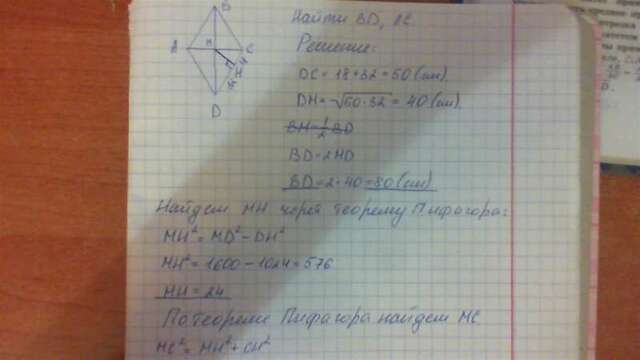 B
A
M
C
H
D
Найти BD, AC
Решение:
DC = 18+32 = 50 (см)
DM = √50·32 = 40 (см).
BM = 1/2 BD
BD = 2MD
BD = 2·40 = 80 (см)
Найдем MH через теорему Пифагора:
MH² = MD² - DH²
MH² = 1600 - 1024 = 576
MH = 24
По теореме Пифагора найдем MC
MC² = MH² + CH²